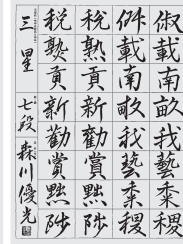 俶載南畝我藝黍稷
俶載南畝我藝黍稷
税熟貢新勸賞黜陟
税熟貢新勸賞黜陟
三星 七段 森川優光